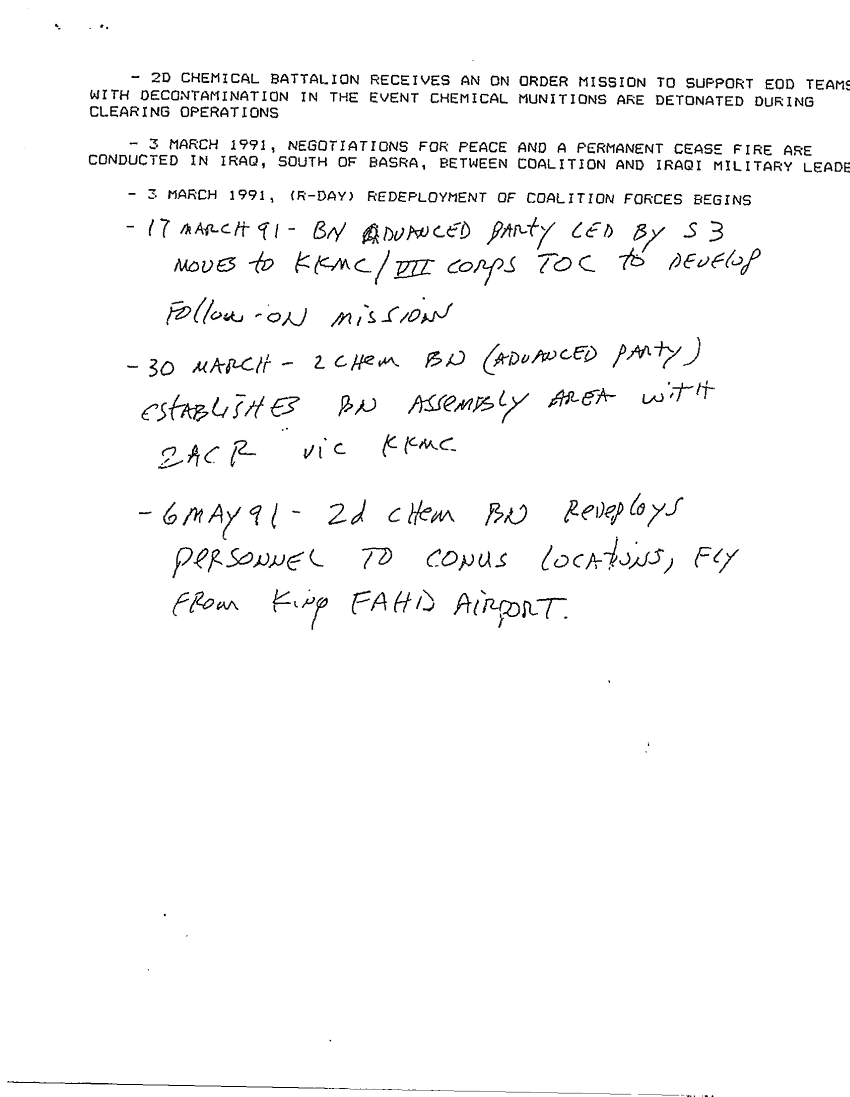 - 2D CHEMICAL BATTALION RECEIVES AN ON ORDER MISSION TO SUPPORT EOD TEAMS
WITH DECONTAMINATION IN THE EVENT CHEMICAL MUNITIONS ARE DETONATED DURING
CLEARING OPERATIONS
- 3 MARCH 1991, NEGOTIATIONS FOR PEACE AND A PERMANENT CEASE FIRE ARE
CONDUCTED IN IRAQ, SOUTH OF BASRA, BETWEEN COALITION AND IRAQI MILITARY LEADE
- 3 MARCH 1991, (R-DAY) REDEPLOYMENT OF COALITION FORCES BEGINS
- 17 MARCH 91 - BN ADVANCED PARTY LED BY S3
MOVES to KKMC/VII CORPS TOC to DEVELOP
Follow-ON MISSION
- 30 MARCH - 2 CHEM BN (ADVANCED PARTY)
ESTABLISHES BN ASSEMBLY AREA WITH
2ACR vic KKMC
- 6 MAY 91 - 2d CHEM BN Redeploys
PERSONNEL TO CONUS LOCATIONS, FLY
FROM King FAHD AIRPORT.